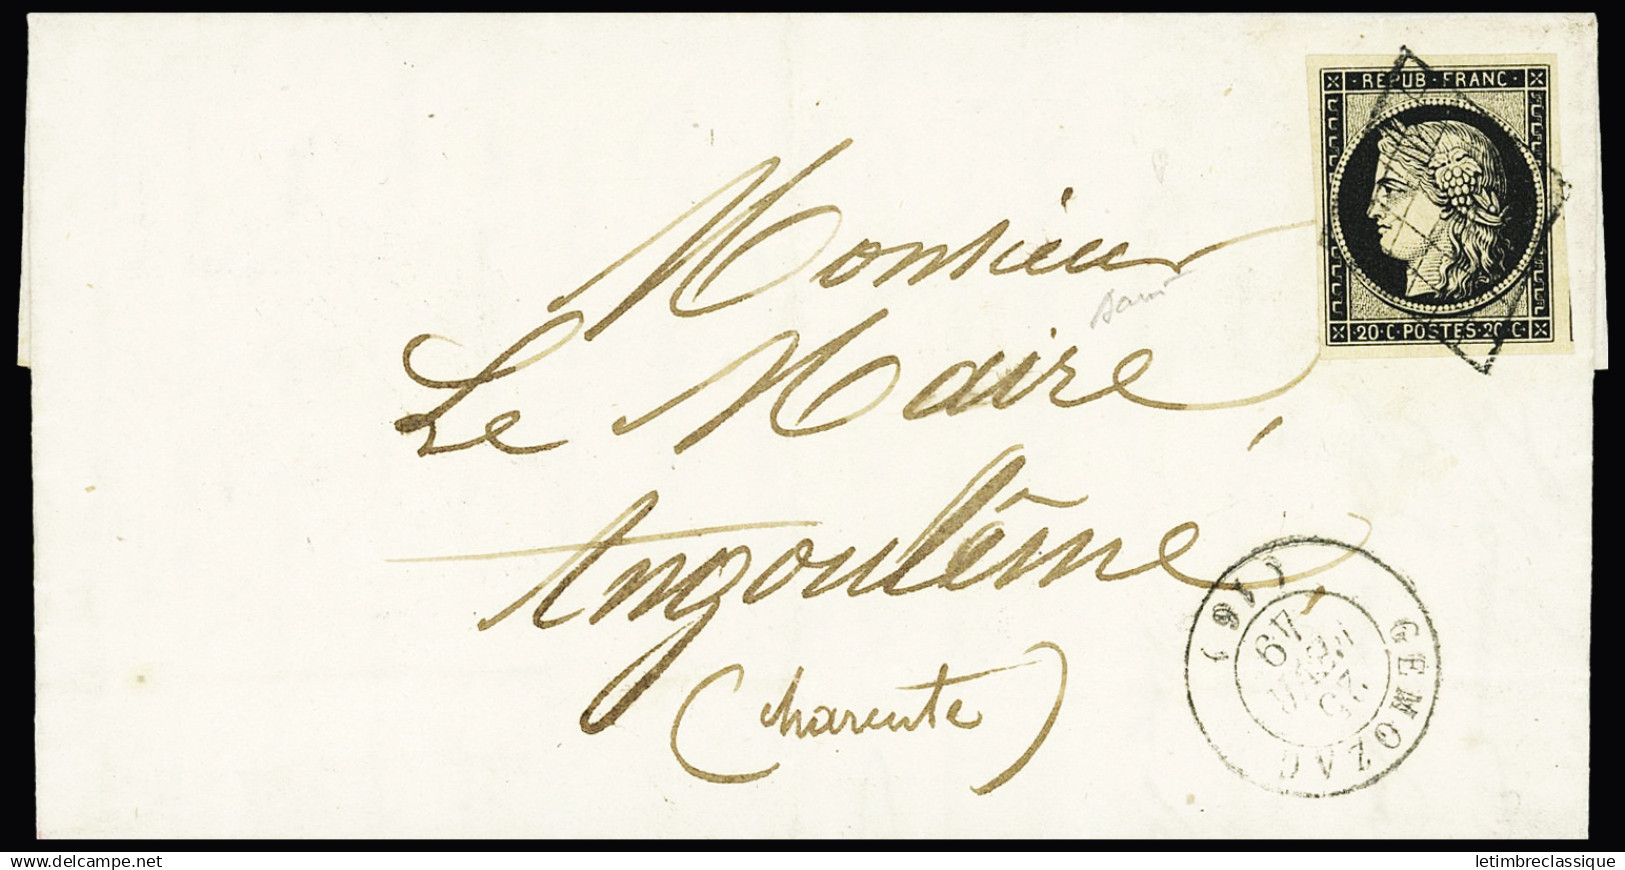 REPUB · FRANC ·
20 · C · POSTES · 20 · C ·
Monsieur
Le Maire,
Angoulême,
(Charente)
GEMOZAC (16)
25
49
www.delcampe.net
letimbreclassique